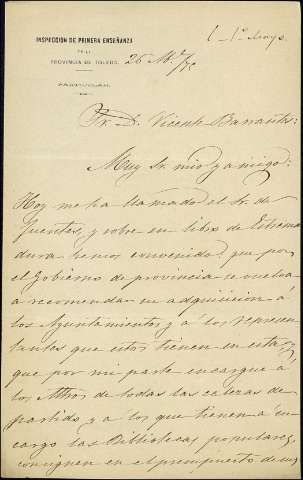 INSPECCION DE PRIMERA ENSEÑANZA
DE LA
PROVINCIA DE TOLEDO.
PARTICULAR.
Sr. D. Vicente Barrantes:
Muy Sr. mio y amigo:
Hoy me ha llamado el Sr. de
fuentes, y sobre su libro de Estrema
dura hemos convenido que por
el Gobierno de provincia se vuelva
a recomendar su adquisicion á
los Ayuntamientos y á los represen
tantes que estos tienen en esta y
que por mi parte encargue á
los Mtros de todas las cabezas de
partido y a los que tienen á su
cargo las Bibliotecas populares,
consignen en el presupuesto de